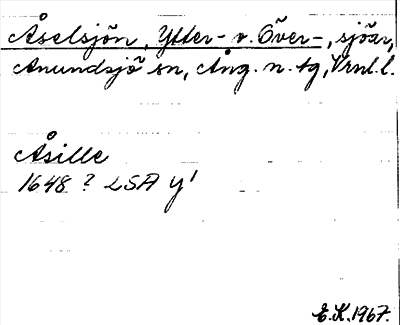 Åselsjön, Ytter- o. Över-, sjöar,
Anundsjö sn, Ång. n. tg, Vrnl. l.
Åsille
1648 ? LSA Y'
E.K. 1967.